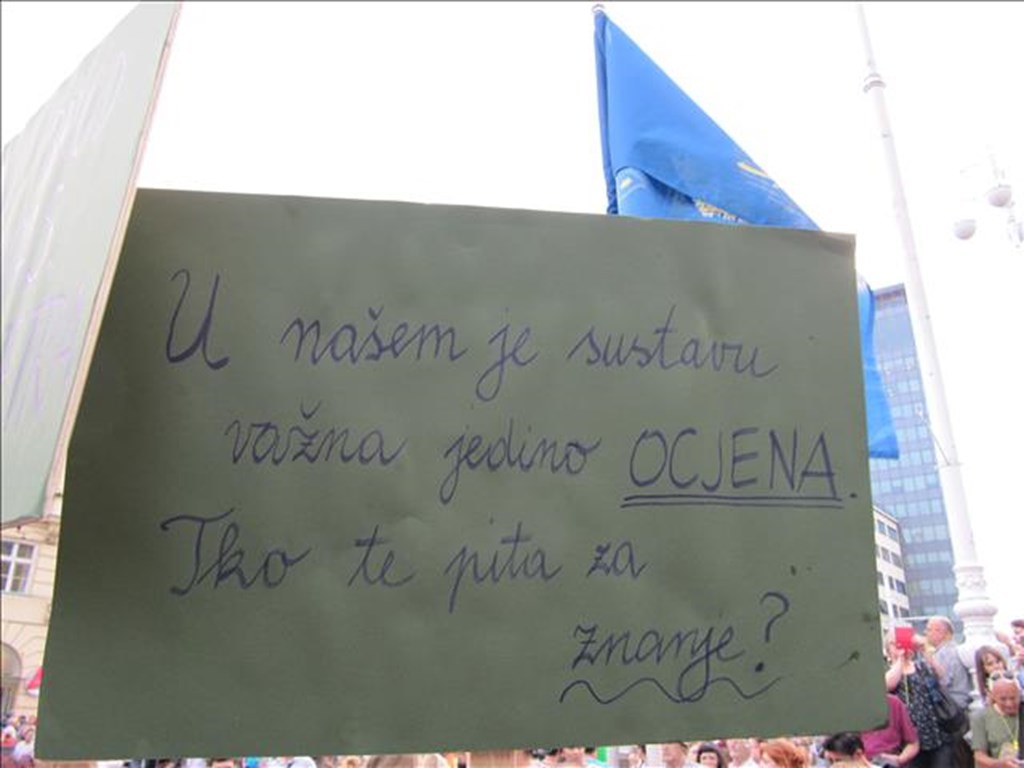 U našem je sustavu
važna jedino OCJENA.
Tko te pita za
znanje?